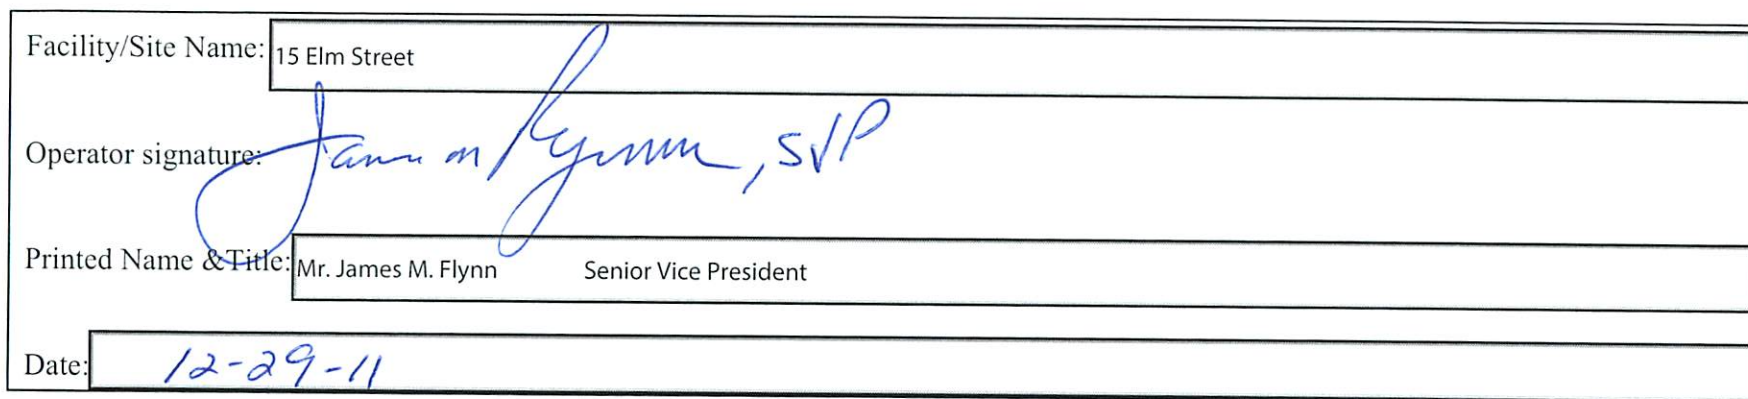 Facility/Site Name: 15 Elm Street
Operator signature: James M Flynn, SVP
Printed Name &Title: Mr. James M. Flynn Senior Vice President
Date: 12-29-11